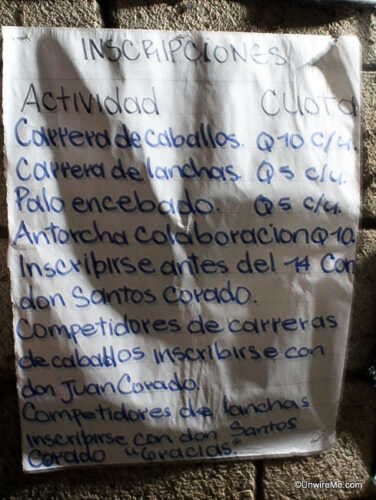 INSCRIPCIONES
Actividad Cuota
Carrera de caballos. Q10 c/u.
Carrera de lanchas Q5 c/u.
Palo encebado. Q5 c/u.
Antorcha colaboracion Q10.
Inscribirse antes del 14 con
don Santos Corado.
Competidores de carreras
de caballos inscribirse con
don Juan Corado.
Competidores de lanchas
inscribirse con don Santos
Corado "Gracias."
©UnwireMe.com